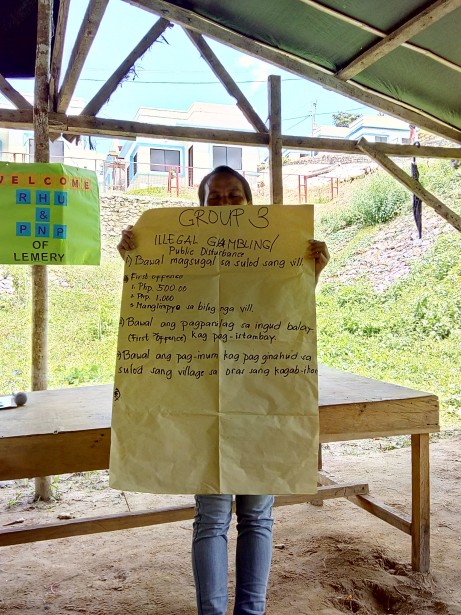 WELCOME
RHU
&
PNP
OF
LEMERY
GROUP 3
ILLEGAL GAMBLING/
Public Disturbance
1) Bawal magsugal sa sulod sang vill.
First offense
1. Php. 500.00
2. Php. 1.000
3. Manglimpyo sa bilog nga vill.
2) Bawal ang pagpanulag sa ingud balay
(First offence) kag pag-istambay.
3) Bawal ang pag-inum kag pag ginahud sa
sulod sang village sa oras sang kagab-ihon